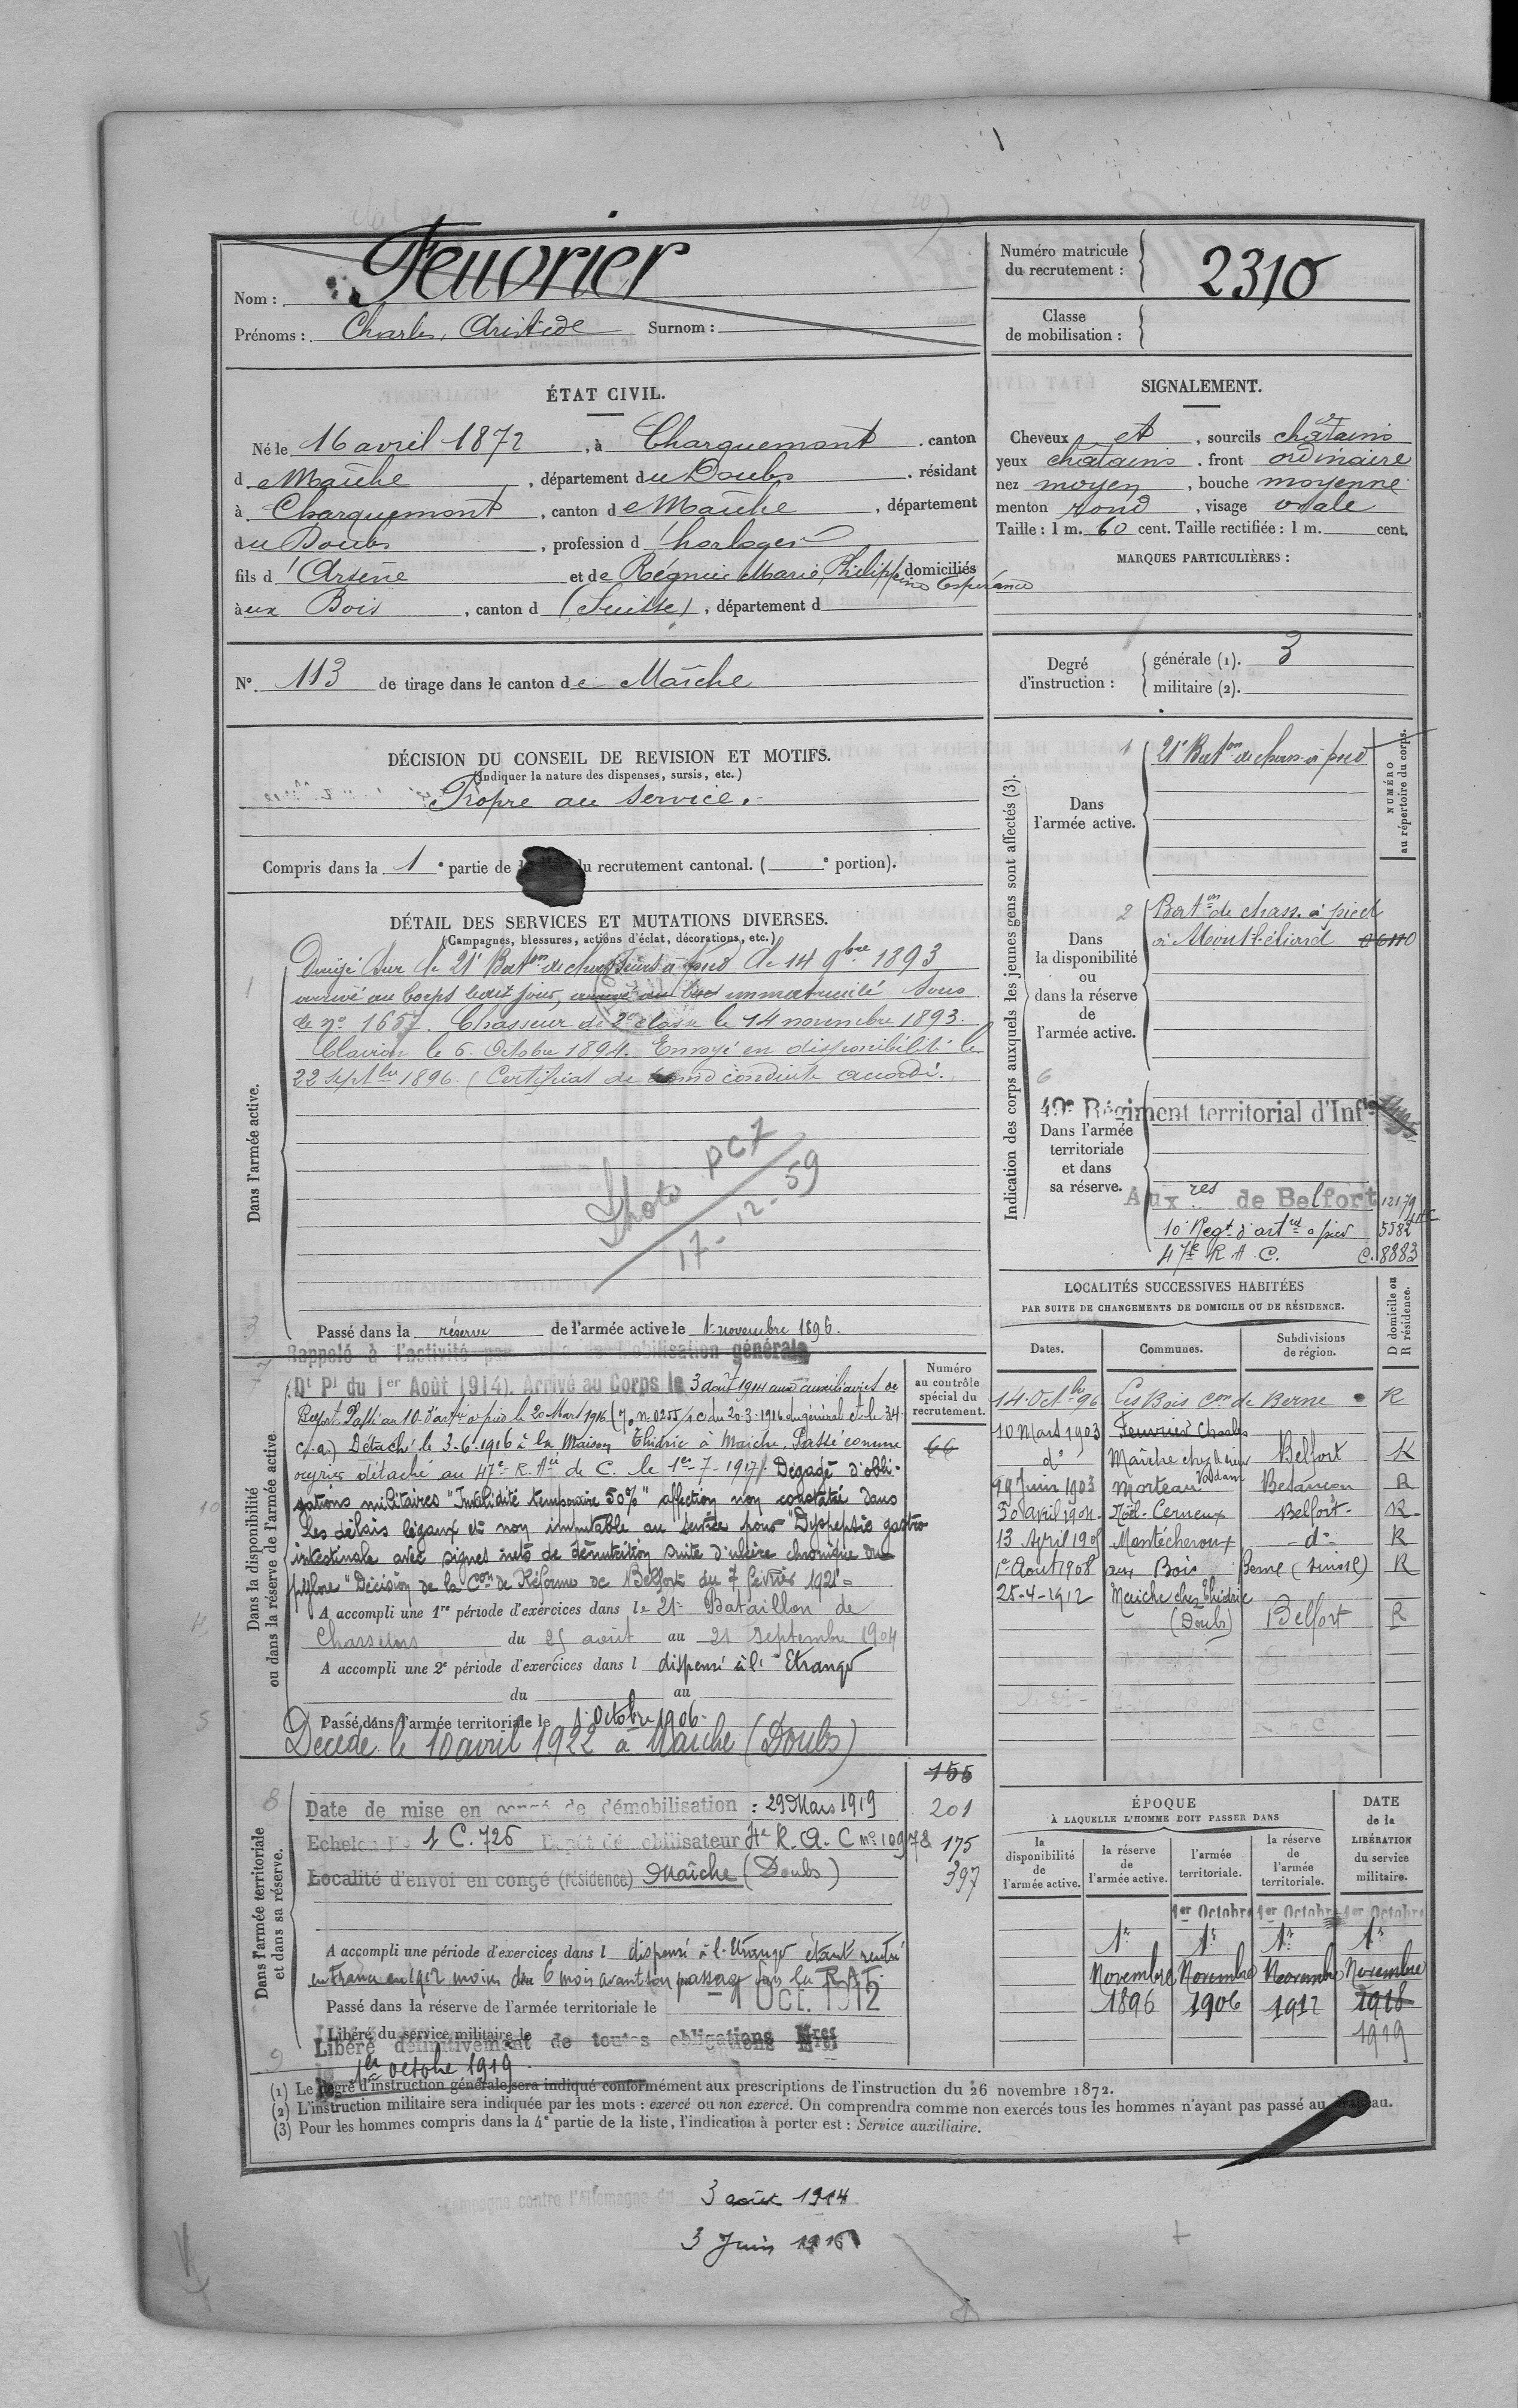 Nom : Feuvrier
Prénoms : Charles, Aristide Surnom :
Numéro matricule du recrutement : 2310
Classe de mobilisation :
ÉTAT CIVIL.
Né le 16 avril 1872, à Charquemont, canton
de Maîche, département du Doubs, résidant
à Charquemont, canton de Maîche, département
du Doubs, profession d'horloger
fils d'Arsène et de Régnier Marie, Philippine Espérance domiciliés
à ux Bois, canton d (Suisse), département d
SIGNALEMENT.
Cheveux et, sourcils châtains
yeux châtains, front ordinaire
nez moyen, bouche moyenne
menton rond, visage ovale
Taille : 1 m. 60 cent. Taille rectifiée : 1 m. cent.
MARQUES PARTICULIÈRES :
N° 113 de tirage dans le canton de Maîche
Degré d'instruction : générale (1). 3
militaire (2).
DÉCISION DU CONSEIL DE REVISION ET MOTIFS.
(Indiquer la nature des dispenses, sursis, etc.)
Propre au service.
Compris dans la 1e partie de du recrutement cantonal. ( e portion).
DÉTAIL DES SERVICES ET MUTATIONS DIVERSES.
(Campagnes, blessures, actions d'éclat, décorations, etc.)
Dans l'armée active.
Dirigé sur le 21e Baton de chasseurs à pied le 14 9bre 1893
arrivé au corps ledit jour, immatriculé sous
le no 1657. Chasseur de 2e classe le 14 novembre 1893.
Clairon le 6 Octobre 1894. Envoyé en disponibilité le
22 septbre 1896. Certificat de bonne conduite accordé.
Photo PC7
17-12-59
Passé dans la réserve de l'armée active le 1er novembre 1896.
Dans la disponibilité ou dans la réserve de l'armée active
Numéro au contrôle spécial du recrutement.
66
Rappelé à l'activité par suite de Mobilisation générale
(Dt Pl du 1er Août 1914). Arrivé au Corps le 3 août 1914 aux auxiliaires de
Belfort. Passé au 10e d'artie à pied le 20 Mars 1916 (No 0255/1c du 20-3-1916 du général ct le 34
C.a.) Détaché le 3-6-1916 à la Maison Thiédric à Maiche. Passé comme
ouvrier détaché au 47e R. Aie de C. le 1er-7-1917. Dégagé d'obli-
gations militaires "Invalidité temporaire 50%" affection non constatée dans
les délais légaux et non imputable au service pour "Dyspepsie gastro
intestinale avec signes nets de dénutrition suite d'ulcère chronique du
pylore" Décision de la Con de Réforme de Belfort du 7 février 1921
A accompli une 1re période d'exercices dans le 21e Bataillon de
Chasseurs du 25 août au 21 septembre 1904
A accompli une 2e période d'exercices dans l dispensé à l'Etranger
du au
Passé dans l'armée territoriale le 1 Octobre 1906.
Décédé le 10 avril 1922 à Maiche (Doubs)
Dans l'armée territoriale et dans sa réserve.
155
201
175
397
Date de mise en congé de démobilisation : 29 Mars 1919
Echelon No 1 C. 726 Dépôt démobilisateur 4e R.A.C no 10978
Localité d'envoi en congé (résidence) Maîche (Doubs)
A accompli une période d'exercices dans l dispensé à l'étranger étant rentré
en France en 1912 moins de 6 mois avant son passage dans la R.A.T.
Passé dans la réserve de l'armée territoriale le 1 Oct. 1912
Libéré du service militaire le
Libéré définitivement de toutes obligations Mres
le 1er octobre 1919
Indication des corps auxquels les jeunes gens sont affectés (3).
NUMÉRO au répertoire du corps.
Dans l'armée active.
21e Baton de chass. à pied
Dans la disponibilité ou dans la réserve de l'armée active.
Baton de chass. à pied
à Montbéliard
Dans l'armée territoriale et dans sa réserve.
49e Régiment territorial d'Infie
Auxres de Belfort 12179
10e Regt d'artie à pied 5582
47e R.A.C. C. 8883
LOCALITÉS SUCCESSIVES HABITÉES
PAR SUITE DE CHANGEMENTS DE DOMICILE OU DE RÉSIDENCE.
Dates. Communes. Subdivisions de région. D domicile ou R résidence.
14 Octbre 96 Les Bois con de Berne R
10 Mars 1903 Feuvrier Charles
do Maîche Belfort R
Juin 1903 Morteau Besançon R
30 avril 1904 Noël-Cerneux Belfort R
13 Avril 190 Montécheroux do R
1er Août 1908 aux Bois Berne (Suisse) R
25-4-1912 Maiche chez Thiédric (Doubs) Belfort R
ÉPOQUE À LAQUELLE L'HOMME DOIT PASSER DANS
la disponibilité de l'armée active.
la réserve de l'armée active.
l'armée territoriale.
la réserve de l'armée territoriale.
DATE de la LIBÉRATION du service militaire.
1er Octobre 1er Octobre 1er Octobre
1er 1er 1er 1er
Novembre Novembre Novembre Novembre
1896 1906 1912 1918
1919
(1) Le degré d'instruction générale sera indiqué conformément aux prescriptions de l'instruction du 26 novembre 1872.
(2) L'instruction militaire sera indiquée par les mots : exercé ou non exercé. On comprendra comme non exercés tous les hommes n'ayant pas passé au drapeau.
(3) Pour les hommes compris dans la 4e partie de la liste, l'indication à porter est : Service auxiliaire.
Campagne contre l'Allemagne du 3 août 1914
3 Juin 1916